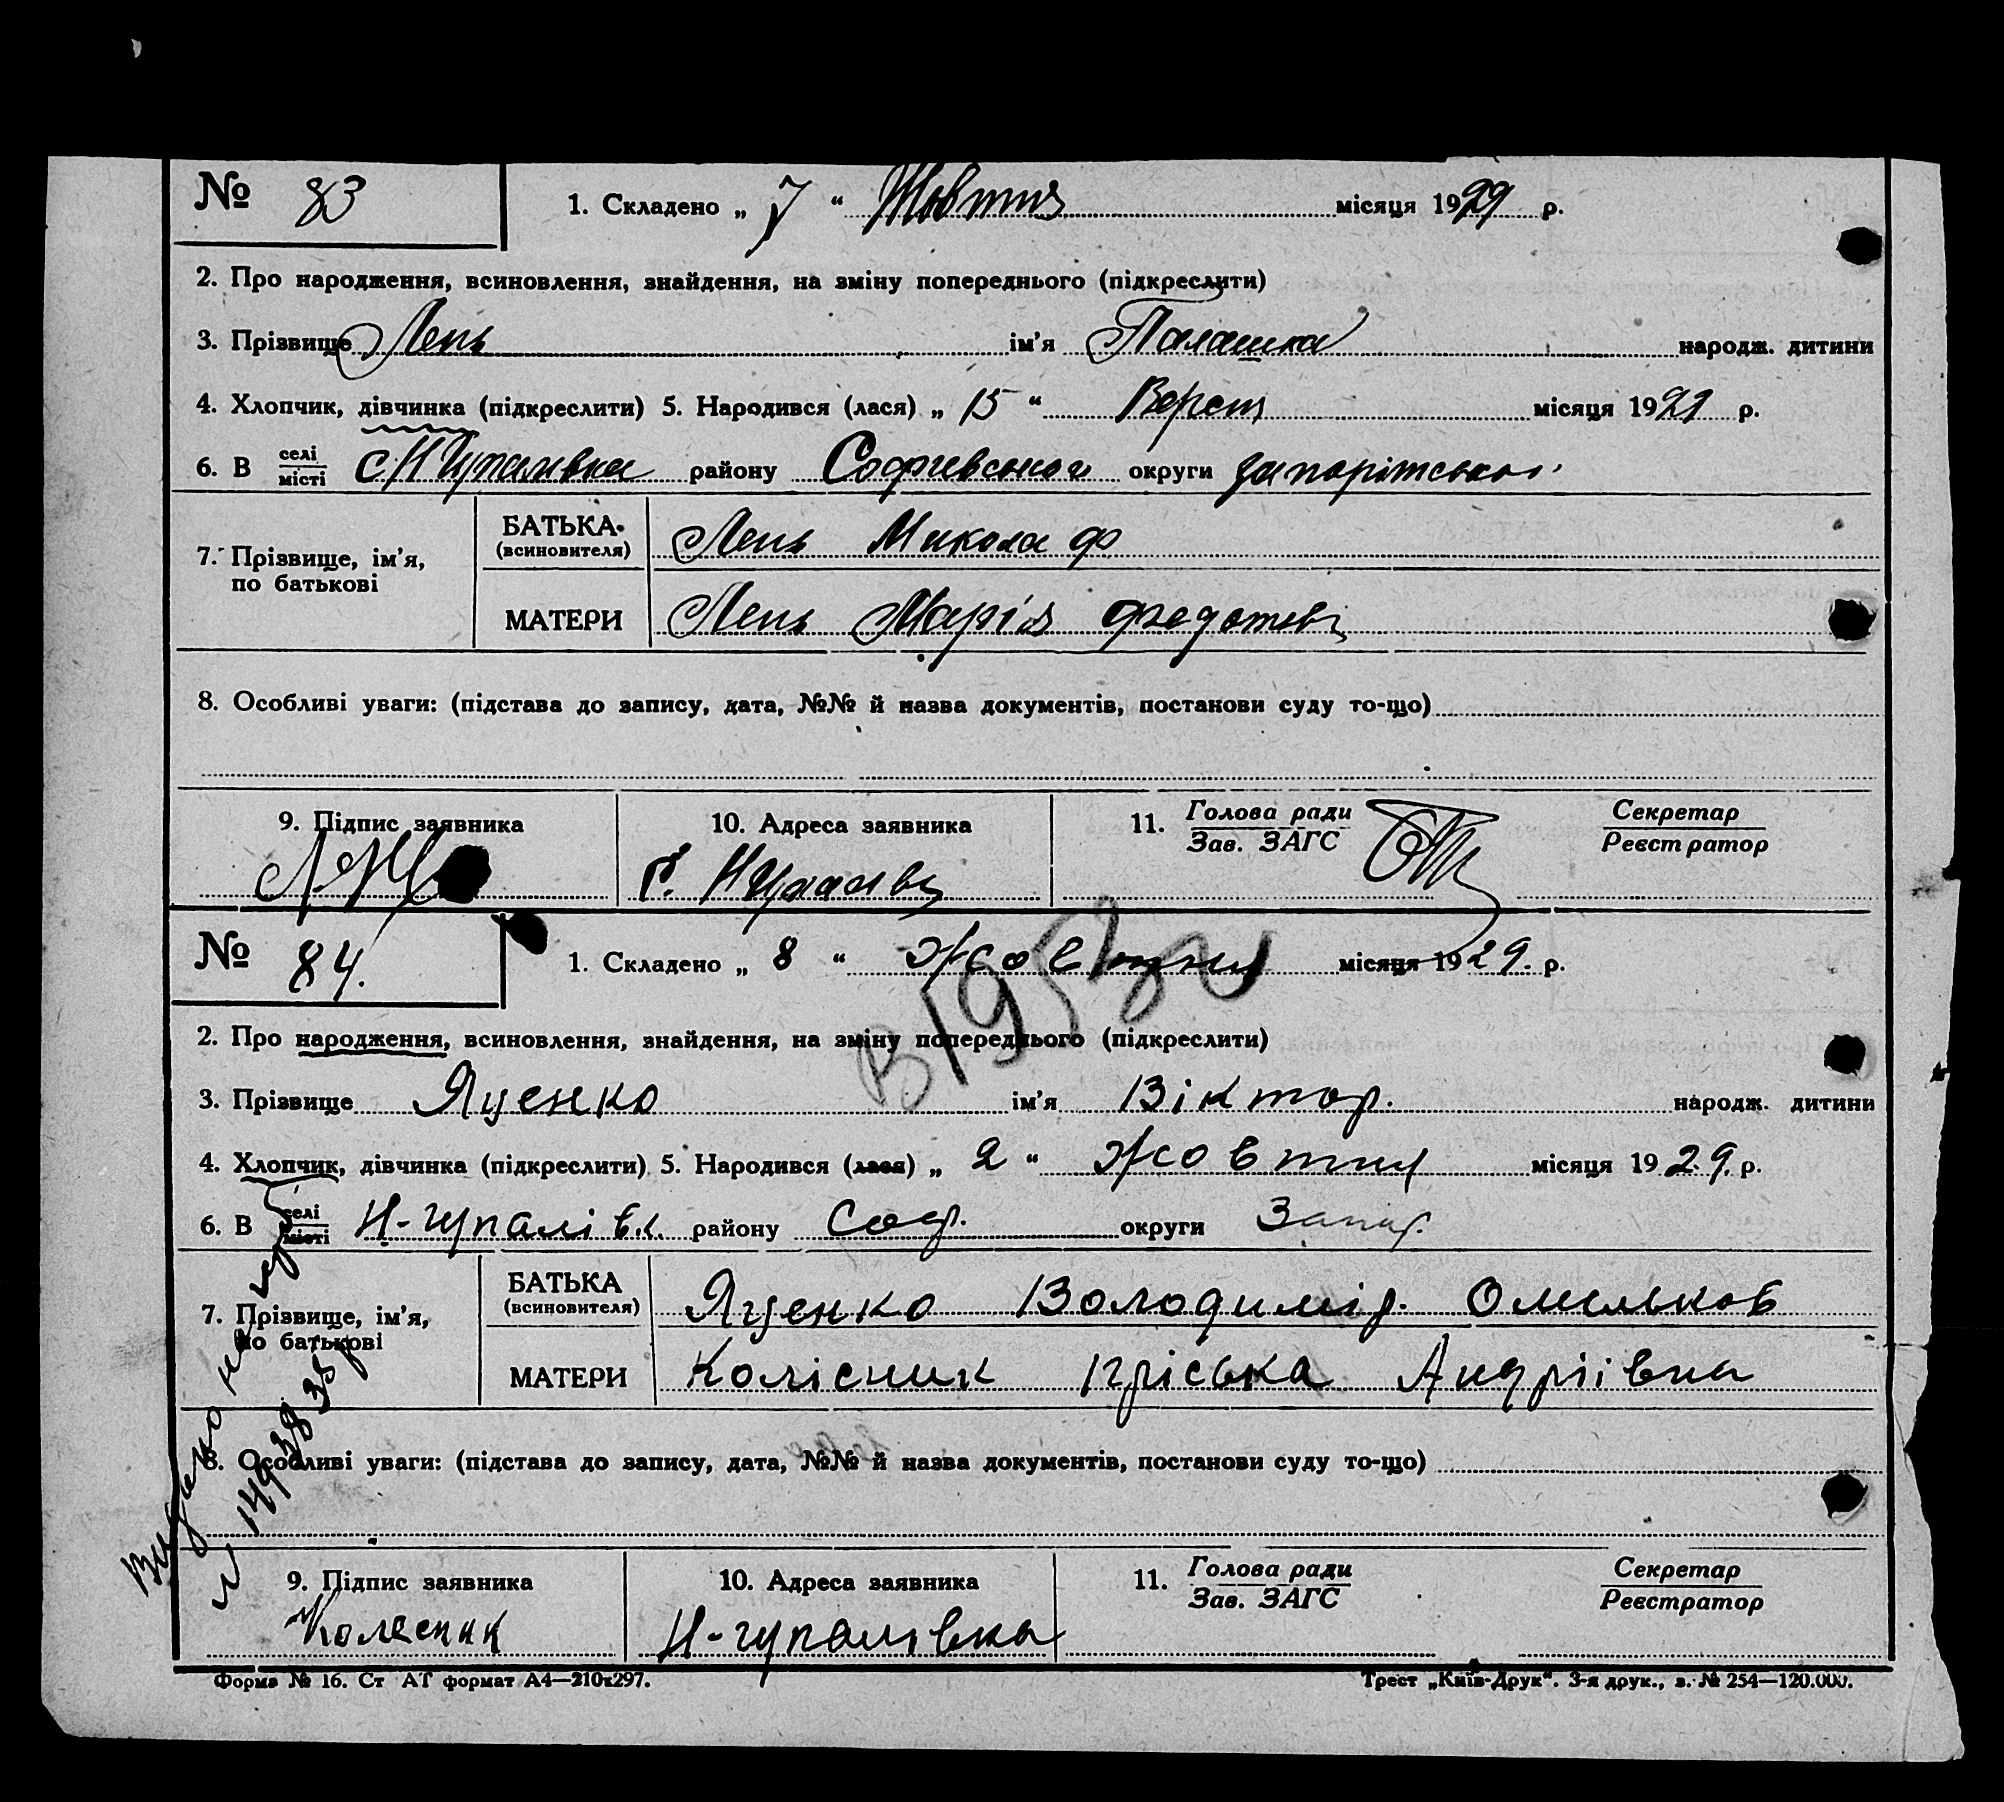 № 83
1. Складено „ 7 “ Жовтня місяця 1929 р.
2. Про народження, всиновлення, знайдення, на зміну попереднього (підкреслити)
3. Прізвище Лень ім'я Палашка народж. дитини
4. Хлопчик, дівчинка (підкреслити) 5. Народився (лася) „ 15 “ Вересн місяця 1929 р.
6. В селі місті району округи
7. Прізвище, ім'я, по батькові
БАТЬКА (всиновителя) Лень Микола Ф
МАТЕРИ Лень Марія
8. Особливі уваги: (підстава до запису, дата, №№ й назва документів, постанови суду то-що)
9. Підпис заявника 10. Адреса заявника 11. Голова ради Зав. ЗАГС Секретар Реєстратор
№ 84.
1. Складено „ 8 “ Жовтня місяця 1929. р.
2. Про народження, всиновлення, знайдення, на зміну попереднього (підкреслити)
3. Прізвище Яценко ім'я Віктор. народж. дитини
4. Хлопчик, дівчинка (підкреслити) 5. Народився (лася) „ 2 “ Жовтня місяця 1929. р.
6. В селі місті Н-Гупалівк. району Соф. округи Запор.
7. Прізвище, ім'я, по батькові
БАТЬКА (всиновителя) Яценко Володимір. Омельков
МАТЕРИ Колісник Пріська Андріівна
8. Особливі уваги: (підстава до запису, дата, №№ й назва документів, постанови суду то-що)
9. Підпис заявника 10. Адреса заявника 11. Голова ради Зав. ЗАГС Секретар Реєстратор
Колесник Н-Гупалівка
Форма № 16. Ст АТ формат А4—210x297.
Трест „Київ-Друк“. 3-я друк., з. № 254—120.000.